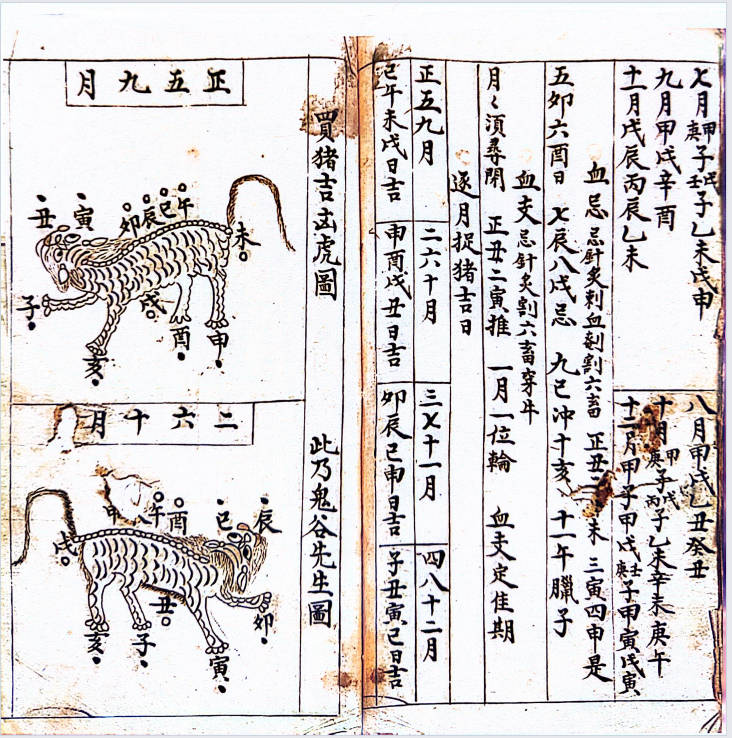 七月甲庚子戊壬子乙未戊申
九月甲戌辛酉
十一月戊辰丙辰乙未
八月甲戌乙丑癸丑
十月甲庚子戊丙子乙未辛未庚午
十二月甲子甲戌壬庚子甲寅戊寅
血忌 忌針炙刺血剖割六畜 正丑二未 三寅四申是
五卯六酉日 七辰八戌忌 九巳冲十亥 十一午臘子
血支 忌針炙割六畜穿牛
月々須尋閉 正丑二寅推 一月一位輪 血支定佳期
逐月捉猪吉日
正五九月 二六十月 三七十一月 四八十二月
巳午未戌日吉 申酉戌丑日吉 卯辰巳申日吉 子丑寅巳日吉
買猪吉凶虎圖 此乃鬼谷先生圖
正五九月
午
巳
辰
卯
寅
丑
未
子
戌
酉
申
亥
二六十月
辰
巳
酉
午
申
戌
丑
卯
亥
子
寅